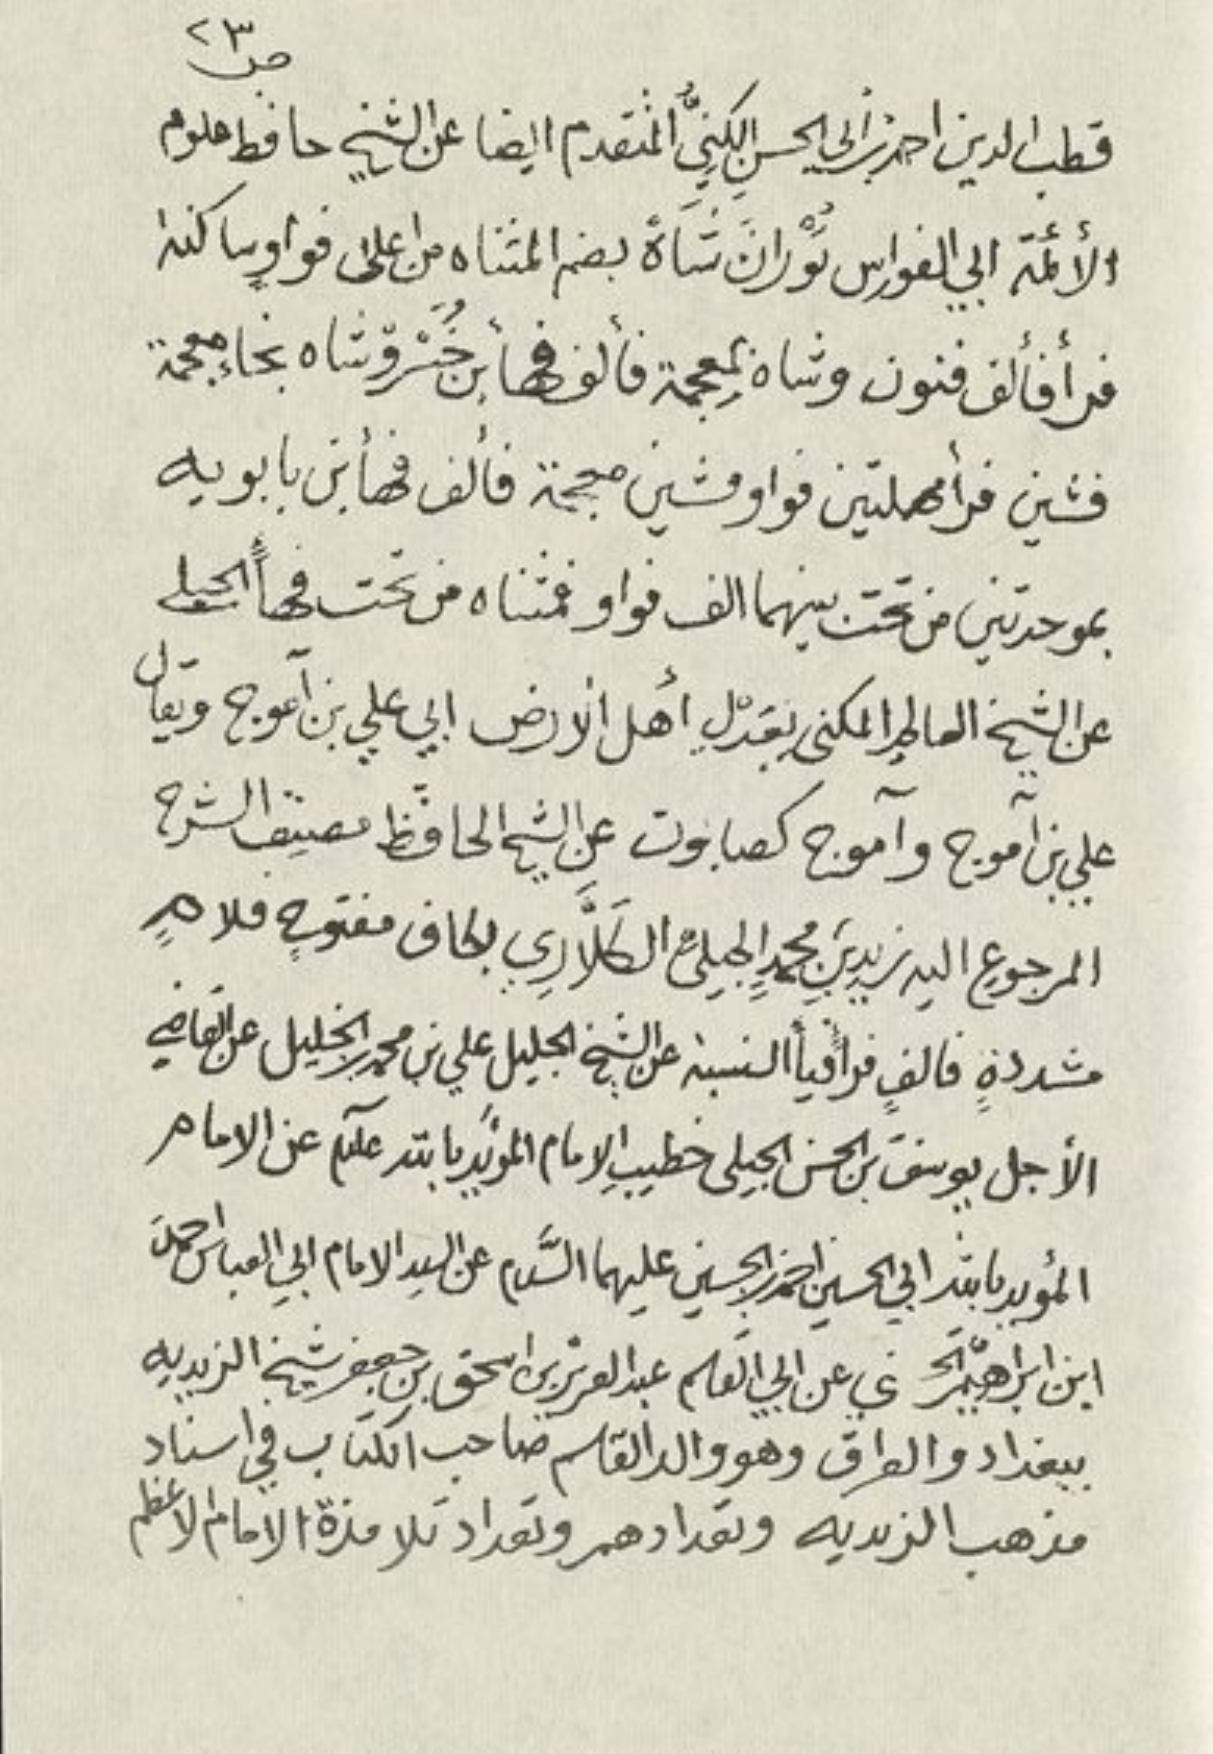 ص ٢٣
قطب الدين احمد بن أبي الحسن الكنيُّ المتقدم ايضا عن الشيخ حافظ علوم
الأئمة ابي الفوارس تُوْرَانَ شَاهْ بضم المثناه من اعلى فواوٍ ساكنه
فرأ فألف فنون وشاه بمعجمة فألف فهأ بن خُسْرَوْشاه بخاءٍ معجمة
فسين فرأ مهملتين فواو فشين معجمة فألف فهأ بن بابويه
بموحدتين من تحت بينهما الف فواو فمثناه من تحت فهأ الجيلي
عن الشيخ العالم المكنى بعدل أهل الارض ابي علي بن آموج ويقال
علي بن آموج وآموج كصابوت عن الشيخ الحافظ مصنف الشرح
المرجوع اليه زيد بن محمدٍ الجيلي الكَلَّارِي بكاف مفتوحٍ فلامٍ
مشددةٍ فالفٍ فرأ فيأ النسبه عن الشيخ الجليل علي بن محمد الخليل عن القاضي
الأجل يوسف بن الحسن الجيلي خطيب الامام المؤيد بالله عليلم عن الامام
المؤيد بالله ابي الحسين احمد بن الحسين عليهما السَّلام عن السيد الامام ابي العباس احمد
ابن ابراهيم الحسني عن ابي القاسم عبد العزيز بن اسحق بن جعفر شيخ الزيديه
ببغداد والعراق وهو والد القاسم صاحب الكتاب في اسناد
مذهب الزيديه وتعدادهم وتعداد تلامذة الامام الاعظم